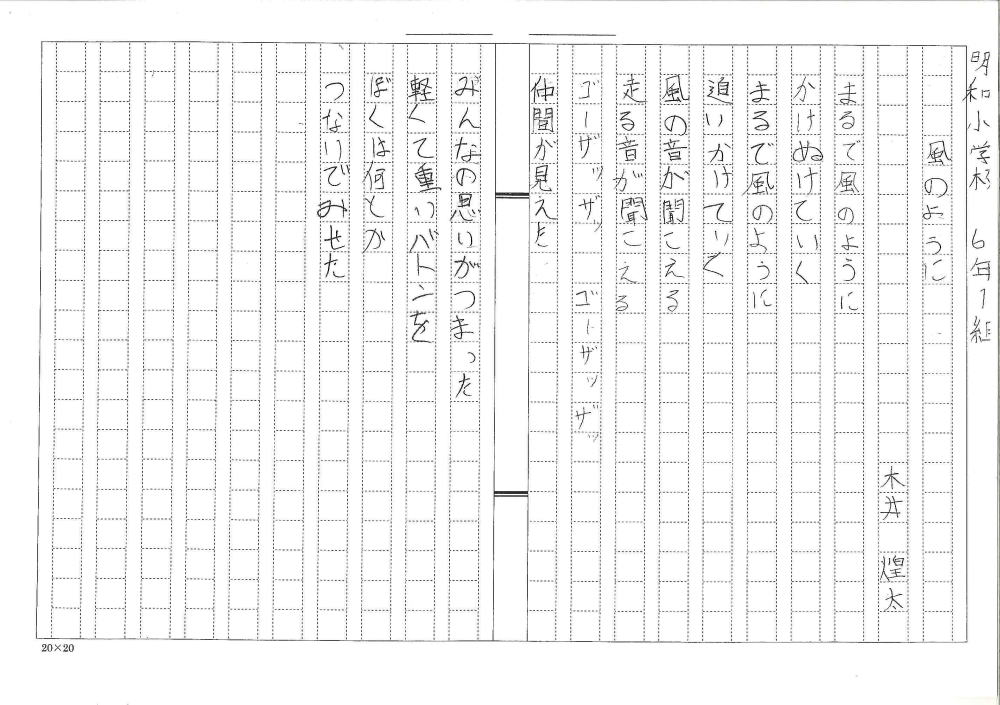 明和小学校　6年1組
風のように
木井　煌太
まるで風のように
かけぬけていく
まるで風のように
追いかけていく
風の音が聞こえる
走る音が聞こえる
ゴーザッザッ　ゴーザッザッ
仲間が見えた
みんなの思いがつまった
軽くて重いバトンを
ぼくは何とか
つないでみせた
20×20